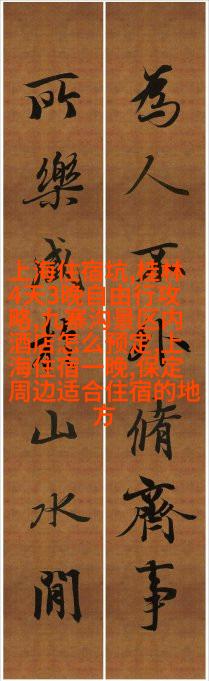 為人不外脩齊事
所樂咸山水間
上海住宿坑,桂林
4天3晚自由行攻
略,九寨沟景区内
酒店怎么预定,上
海住宿一晚,保定
周边适合住宿的地
方